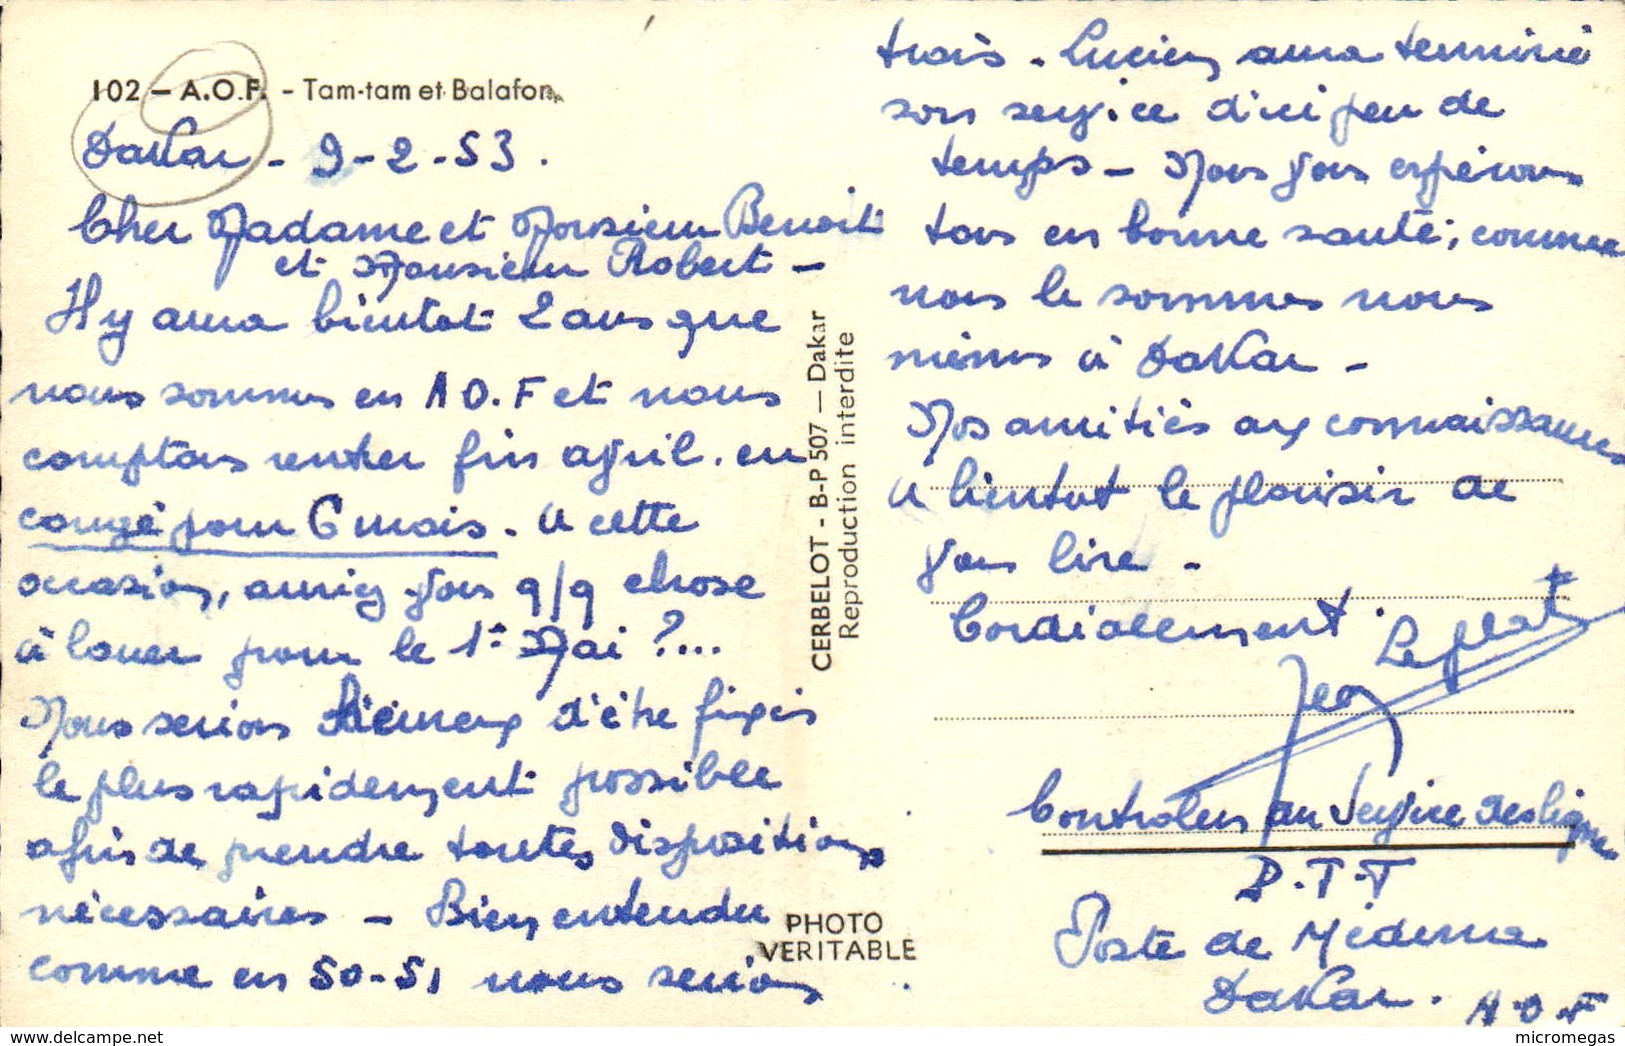 102 - A.O.F. - Tam-tam et Balafon
Dakar - 9-2-53.
Cher Madame et Monsieur Benoit
et Monsieur Robert -
Il y aura bientot 2 ans que
nous sommes en A O.F et nous
comptons rentrer fin avril. en
congé pour 6 mois. A cette
occasion, auriez vous q/q chose
à louer pour le 1er Mai ?...
Nous serions heureux d'être fixés
le plus rapidement possible
afin de prendre toutes dispositions
nécessaires - Bien entendu
comme en 50-51 nous serions
trois - Lucien aura terminé
son service d'ici peu de
temps - Nous vous espérons
tous en bonne santé, comme
nous le sommes nous
mêmes à Dakar -
Nos amitiés aux connaissances
A bientot le plaisir de
vous lire -
Cordialement.
Leplat
Jean
Controleur au Service des lignes
P.T.T
Poste de Médina
Dakar. A.O.F
CERBELOT - B-P 507 — Dakar
Reproduction interdite
PHOTO
VERITABLE
micromegas